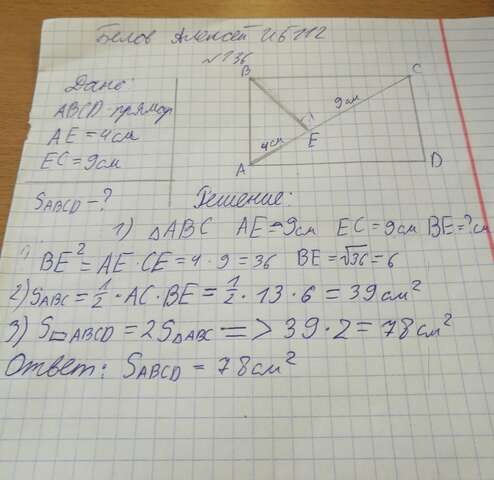 Белов Алексей ИБ112
№136
Дано:
ABCD-прямоуг
AE=4см
EC=9см
SABCD-?
B
C
9см
4см
E
A
D
Решение:
1) △ABC AE=9см EC=9см BE=?см
BE²=AE·CE=4·9=36 BE=√36=6
2) SABC=1/2·AC·BE=1/2·13·6=39см²
3) S□ABCD=2S△ABC=>39·2=78см²
Ответ: SABCD=78см²